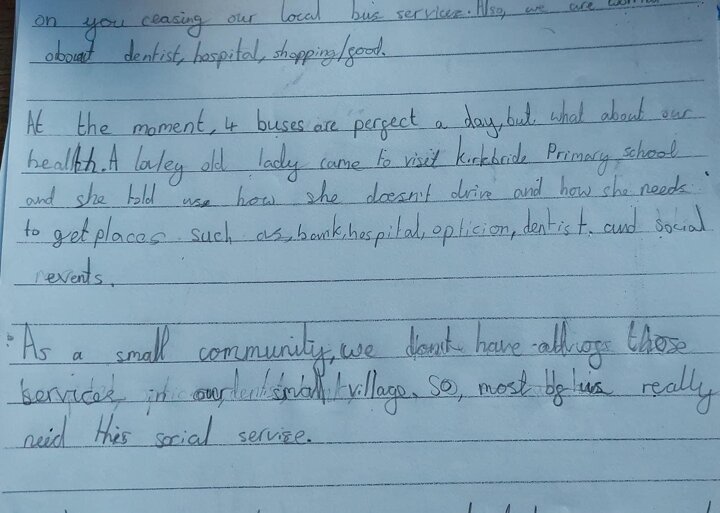 on you ceasing our local bus services. Also, we are
about dentist, hospital, shopping/food.
At the moment, 4 buses are perfect a day, but what about our
health. A lovley old lady came to visit Kirkbride Primary school
and she told use how she doesn't drive and how she needs
to get places such as, bank, hospital, opticion, dentist, and social
events.
As a small community, we dont have all of these
services in our small village. So, most of us really
need this social servise.